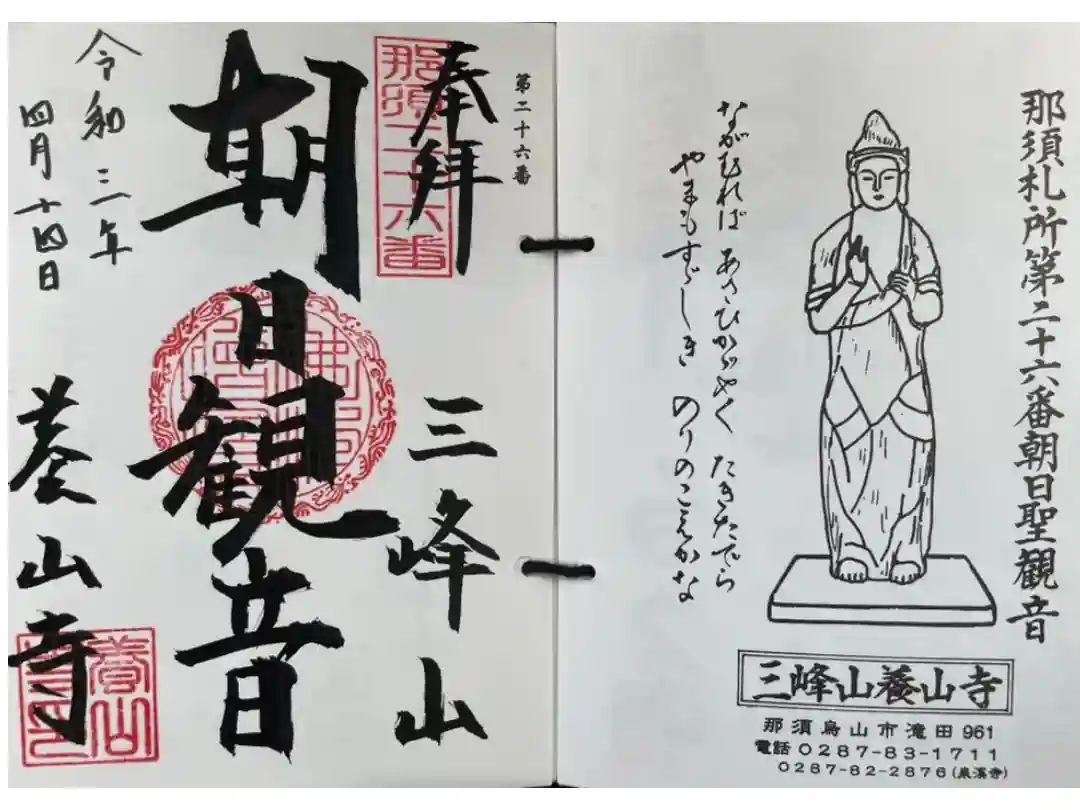 那須札所第二十六番朝日聖観音
ながむれば あさひかゞやく たきたでら
やまもすゞしき のりのこゑかな
三峰山養山寺
那須烏山市滝田961
電話0287-83-1711
0287-82-2876(泉溪寺)
第二十六番
奉拝
那須二十六番
三峰山
朝日観音
令和三年
四月十四日
養山寺